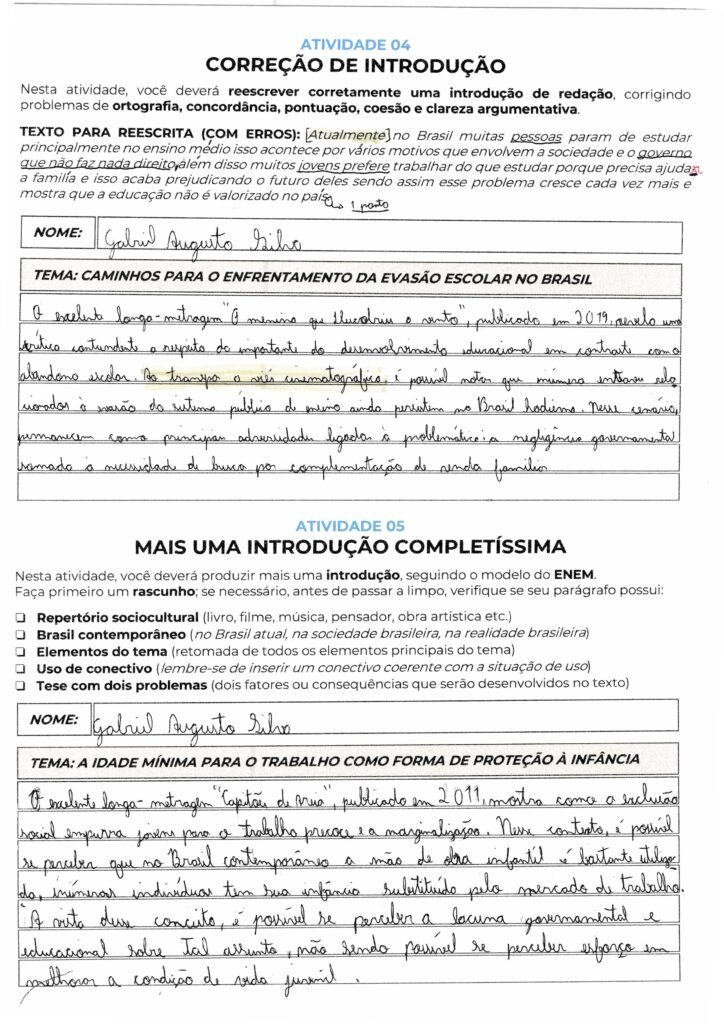 ATIVIDADE 04
CORREÇÃO DE INTRODUÇÃO
Nesta atividade, você deverá reescrever corretamente uma introdução de redação, corrigindo
problemas de ortografia, concordância, pontuação, coesão e clareza argumentativa.
TEXTO PARA REESCRITA (COM ERROS): [Atualmente] no Brasil muitas pessoas param de estudar
principalmente no ensino médio isso acontece por vários motivos que envolvem a sociedade e o governo
que não faz nada direito, além disso muitos jovens prefere trabalhar do que estudar porque precisa ajudar
a família e isso acaba prejudicando o futuro deles sendo assim esse problema cresce cada vez mais e
mostra que a educação não é valorizado no país
1 ponto
NOME: Gabriel Augusto Silva
TEMA: CAMINHOS PARA O ENFRENTAMENTO DA EVASÃO ESCOLAR NO BRASIL
O excelente longa-metragem "O menino que descobriu o vento", publicado em 2019, revela uma
crítica contundente a respeito da importante do desenvolvimento educacional em contraste com o
abandono escolar. Ao transpor o viés cinematográfico, é possível notar que inúmera entraves rela
cionados à evasão do sistema público de ensino ainda persistem no Brasil hodierno. Nesse cenário,
permanecem como principais adversidades ligadas à problemática: a negligência governamental
somado à necessidade de busca por complementação de renda familiar
ATIVIDADE 05
MAIS UMA INTRODUÇÃO COMPLETÍSSIMA
Nesta atividade, você deverá produzir mais uma introdução, seguindo o modelo do ENEM.
Faça primeiro um rascunho; se necessário, antes de passar a limpo, verifique se seu parágrafo possui:
❏ Repertório sociocultural (livro, filme, música, pensador, obra artística etc.)
❏ Brasil contemporâneo (no Brasil atual, na sociedade brasileira, na realidade brasileira)
❏ Elementos do tema (retomada de todos os elementos principais do tema)
❏ Uso de conectivo (lembre-se de inserir um conectivo coerente com a situação de uso)
❏ Tese com dois problemas (dois fatores ou consequências que serão desenvolvidos no texto)
NOME: Gabriel Augusto Silva
TEMA: A IDADE MÍNIMA PARA O TRABALHO COMO FORMA DE PROTEÇÃO À INFÂNCIA
O excelente longa-metragem "Capitães de Areia", publicado em 2011, mostra como a exclusão
social empurra jovens para o trabalho precoce e a marginalização. Nesse contexto, é possível
se perceber que no Brasil contemporâneo a mão de obra infantil é bastante utiliza
da, inúmeras indivíduas tem sua infância substituída pelo mercado de trabalho.
À vista desse conceito, é possível se perceber a lacuna governamental e
educacional sobre tal assunto, não sendo possível se perceber esforço em
melhorar a condição de vida juvenil.